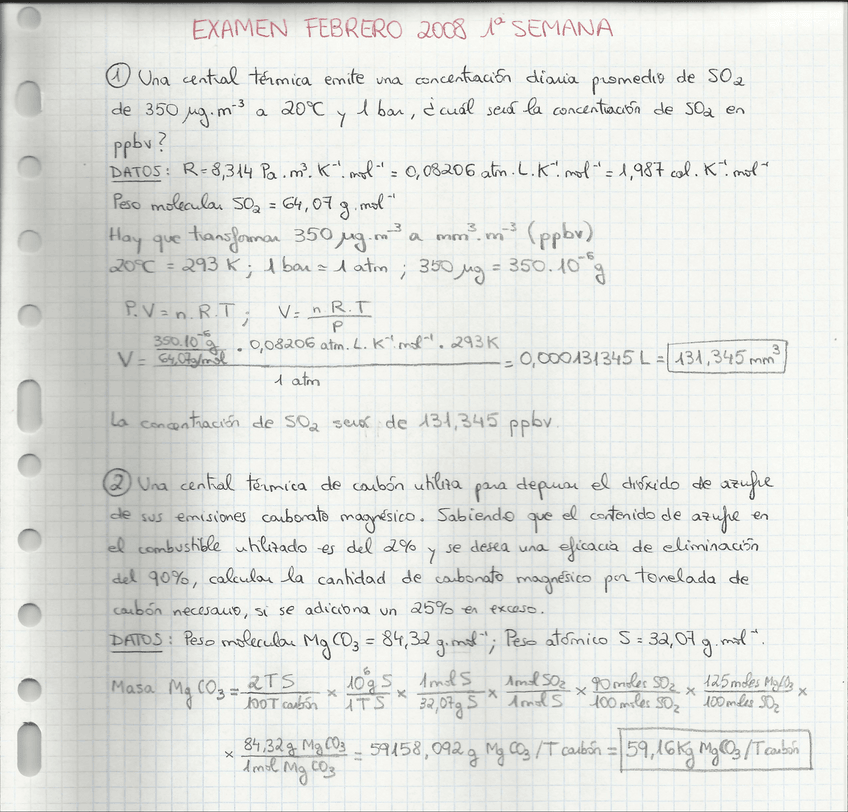 EXAMEN FEBRERO 2008 1ª SEMANA
① Una central térmica emite una concentración diaria promedio de SO₂
de 350 µg.m⁻³ a 20ºC y 1 bar, ¿cuál será la concentración de SO₂ en
ppbv?
DATOS: R=8,314 Pa.m³.K⁻¹.mol⁻¹ = 0,08206 atm.L.K⁻¹.mol⁻¹ = 1,987 cal.K⁻¹.mol⁻¹
Peso molecular SO₂ = 64,07 g.mol⁻¹
Hay que transformar 350 µg.m⁻³ a mm³.m⁻³ (ppbv)
20ºC = 293 K; 1 bar ≃ 1 atm; 350 µg = 350.10⁻⁶ g
P.V = n.R.T; V = n.R.T / P
V = (350.10⁻⁶ g / 64,07g/mol . 0,08206 atm.L.K⁻¹.mol⁻¹ . 293K) / 1 atm = 0,000131345 L = 131,345 mm³
La concentración de SO₂ será de 131,345 ppbv.
② Una central térmica de carbón utiliza para depurar el dióxido de azufre
de sus emisiones carbonato magnésico. Sabiendo que el contenido de azufre en
el combustible utilizado es del 2% y se desea una eficacia de eliminación
del 90%, calcular la cantidad de carbonato magnésico por tonelada de
carbón necesario, si se adiciona un 25% en exceso.
DATOS: Peso molecular MgCO₃ = 84,32 g.mol⁻¹; Peso atómico S = 32,07 g.mol⁻¹.
Masa MgCO₃ = 2TS / 100T carbón × 10⁶g S / 1TS × 1mol S / 32,07g S × 1mol SO₂ / 1mol S × 90moles SO₂ / 100moles SO₂ × 125moles MgCO₃ / 100moles SO₂ ×
× 84,32g MgCO₃ / 1mol MgCO₃ = 59158,092g MgCO₃/T carbón = 59,16Kg MgCO₃/T carbón